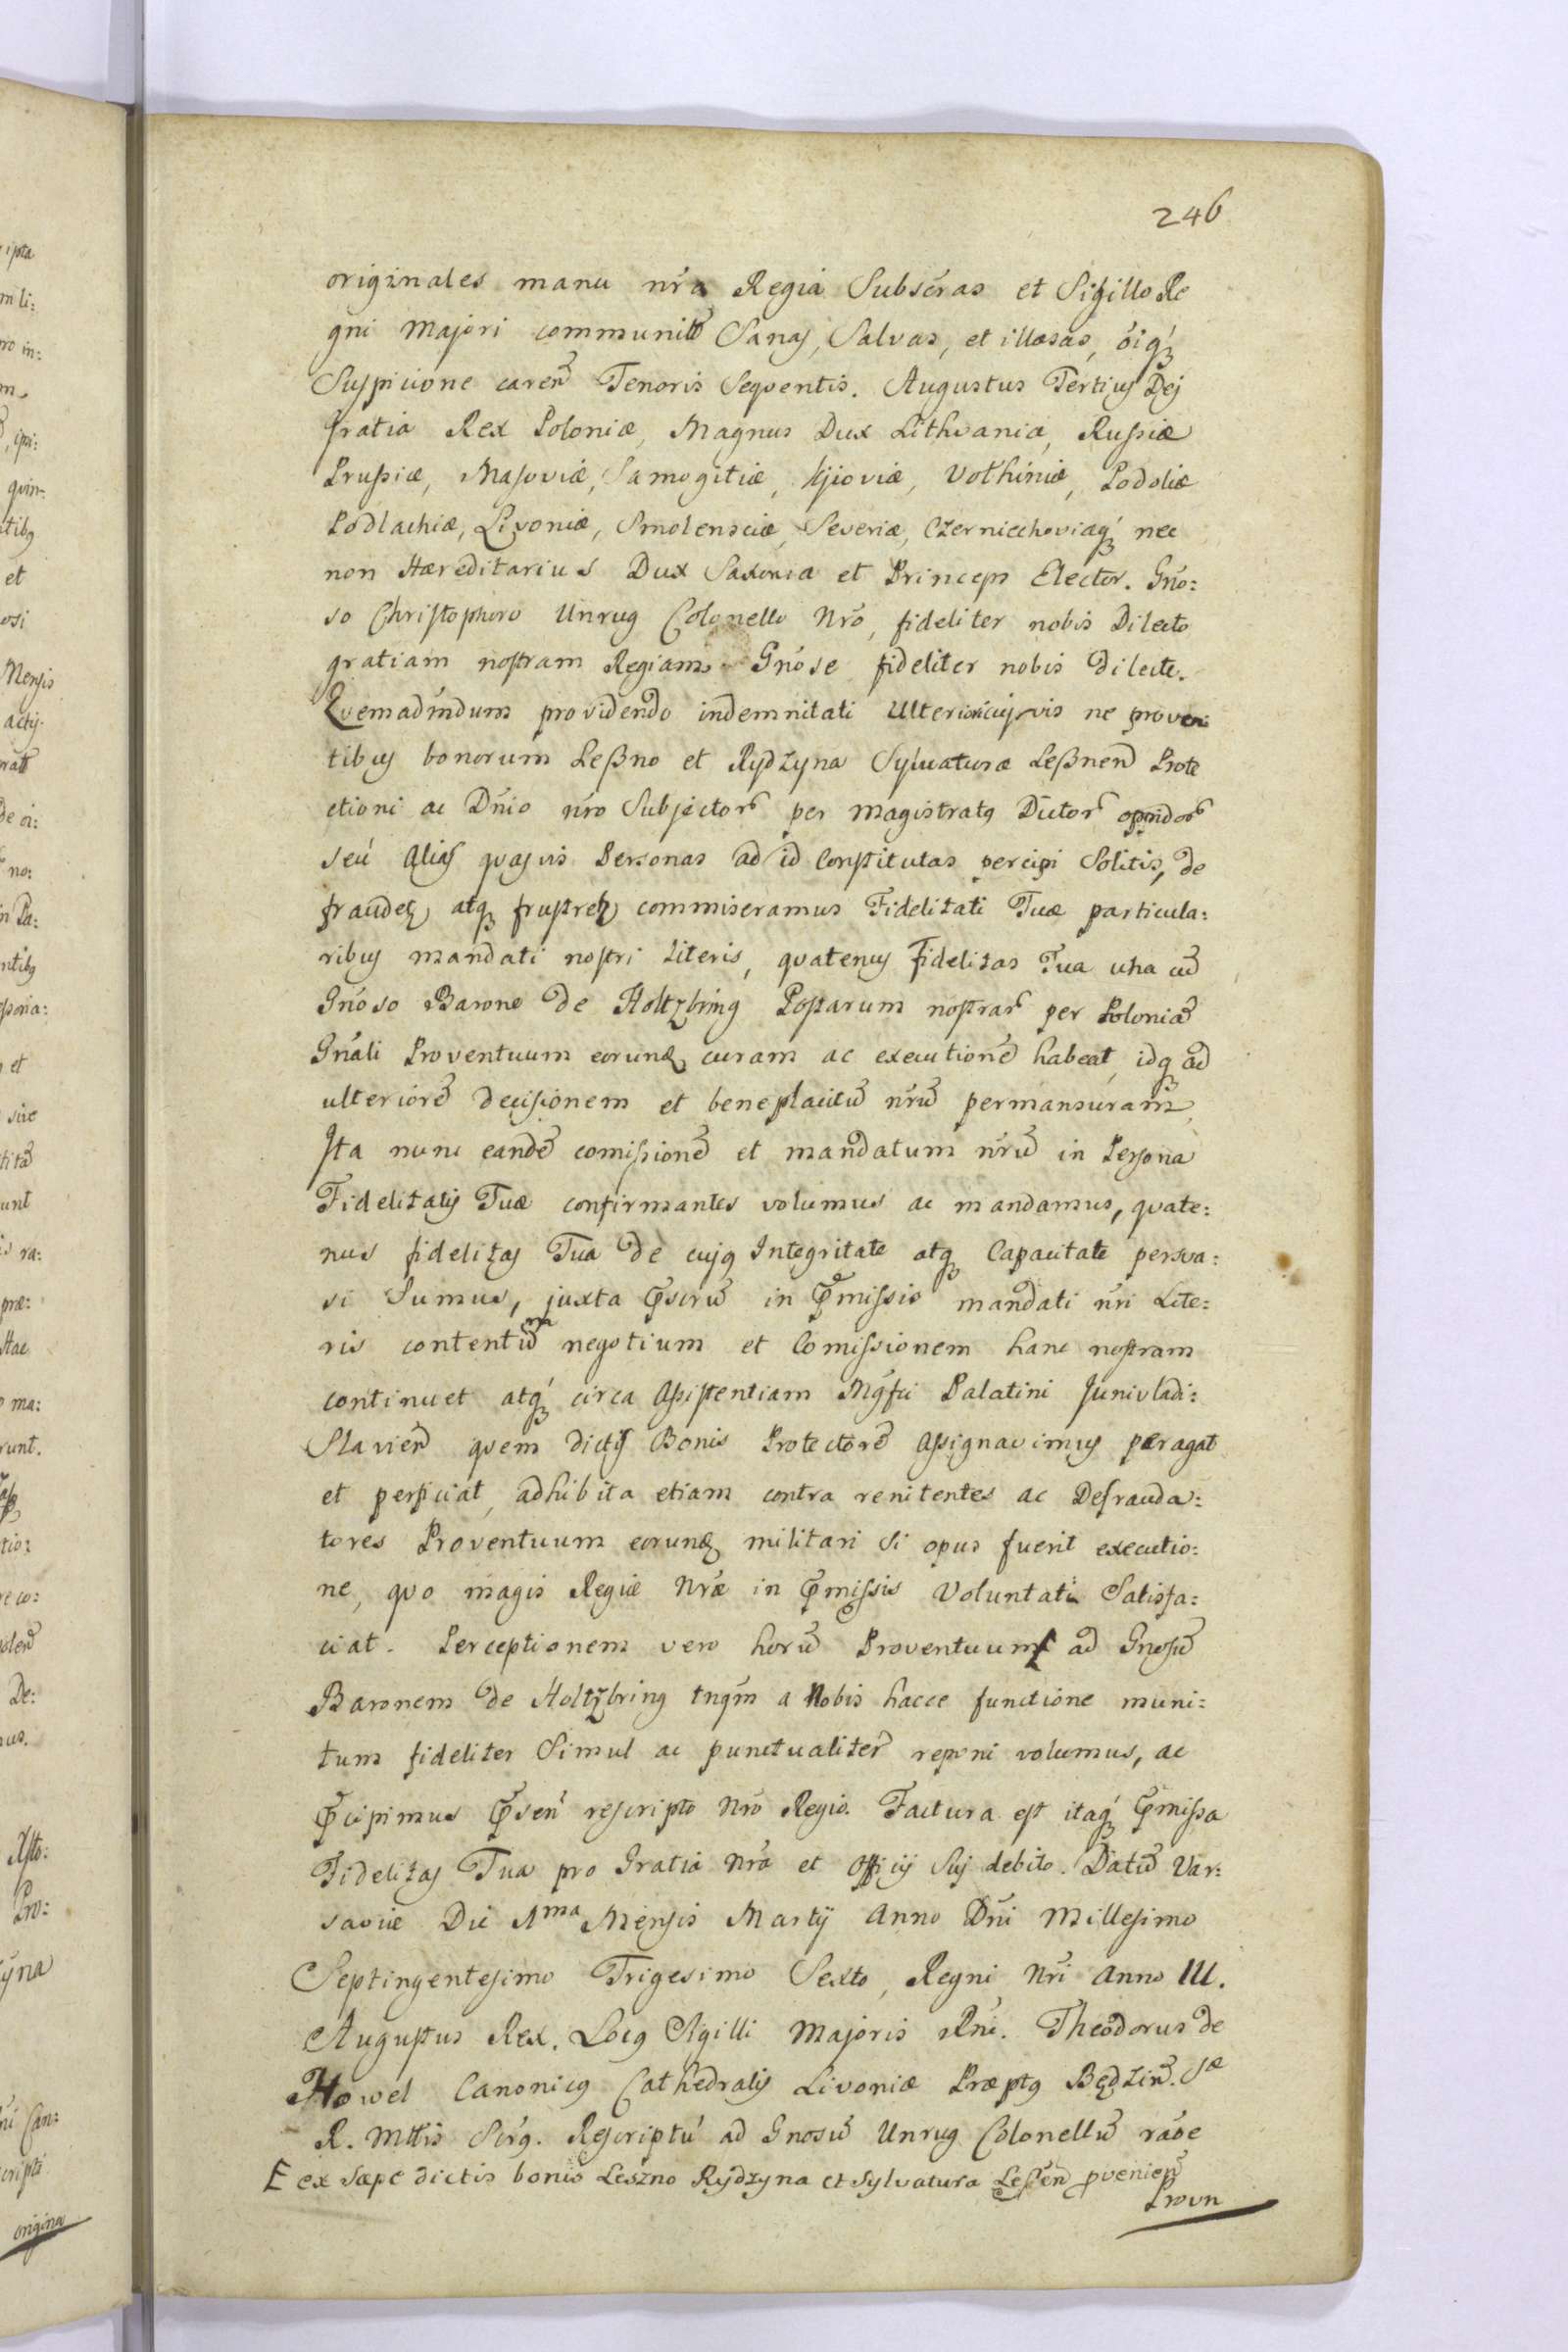 246
originales manu nr̃a Regia Subscr̃as et Sigillo Re
gni Majori communit̃ Sanas, Salvas, et illæsas, õiq́
Suspicione caren̄ Tenoris Seqventis. Augustus Tertius Dej
gratia Rex Poloniæ, Magnus Dux Lithvaniæ, Russiæ
Prussiæ, Masoviæ, Samogitiæ, Kijoviæ, Volhiniæ, Podoliæ
Podlachiæ, Livoniæ, Smolensciæ, Severiæ, Czerniechoviæq́ nec
non Hæreditarius Dux Saxoniæ et Princeps Elector. Gño:
so Christophoro Unrug Colonello Nrõ, fideliter nobis Dilecto
gratiam nostram Regiam. Gñose fideliter nobis dilecte.
Qvemadm̃dum providendo indemnitati ne proven
tibus bonorum Leßno et Rydzyna Sylvaturæ Leßnen̄ Prote
ctioni ac Dn̄io nr̃o Subjector̃ per Magistratq Dictor̃ oppidor̃
seú alias qvasvis Personas ad id Constitutas percipi Solitis, de
fraudeč atq́ frustreč commiseramus Fidelitati Tuæ particula:
ribus mandati nostri literis, qvatenus Fidelitas Tua una cū
Gñoso Barone de Holtzbring Postarum nostrar̃ per Poloniā
Gñali Proventuum eorunđ curam ac executionē habeat, idq́ ad
ulteriorē decisionem et beneplacitū nr̃ū permansuram,
Ita nunc eandē comissionē et mandatum nr̃ū in Persona
Fidelitatis Tuæ confirmantes volumus ac mandamus, qvate:
nus fidelitas Tua de cujq Integritate atq́ Capacitate persva:
si Sumus, juxta p̃scrū in p̃missis mandati nr̃i Lite:
ris contentū negotium et Comissionem hanc nostram
continuet atq́ circa Assistentiam Mgfci Palatini Junivladi:
Slavien̄ qvem dictis Bonis Protectorē assignavimus peragat
et perficiat, adhibita etiam contra renitentes ac Defrauda:
tores Proventuum eorunđ militari si opus fuerit executio:
ne, qvo magis Regiæ Nr̃æ in p̃missis Voluntati Satisfa:
ciat. Perceptionem vero horū Proventuum E ad Gnosū
Baronem de Holtzbring tnq̃m a Nobis hacce functione muni:
tum fideliter Simul ac punctualiter reponi volumus, ac
p̃cipimus p̃sen̄ rescripto Nrõ Regio. Factura est itaq́ p̃missa
Fidelitas Tua pro Gratia Nr̃a et Officij Sui debito. Datū Var:
saviæ Die 1ma Mensis Martij Anno Dn̄i Millesimo
Septingentesimo Trigesimo Sexto, Regni Nr̃i Anno III.
Augustus Rex. Locq Sigilli Majoris Rñi. Theodorus de
Howel Canonicq Cathedralis Livoniæ Præptq Będzin̄. Sæ
R. Mttis Scr̃q. Rescriptū ad Gnosū Unrug Colonellū rãoe
E ex sæpe dictis bonis Leszno Rydzyna et Sylvatura Leßen̄ pvenien̄
Provn